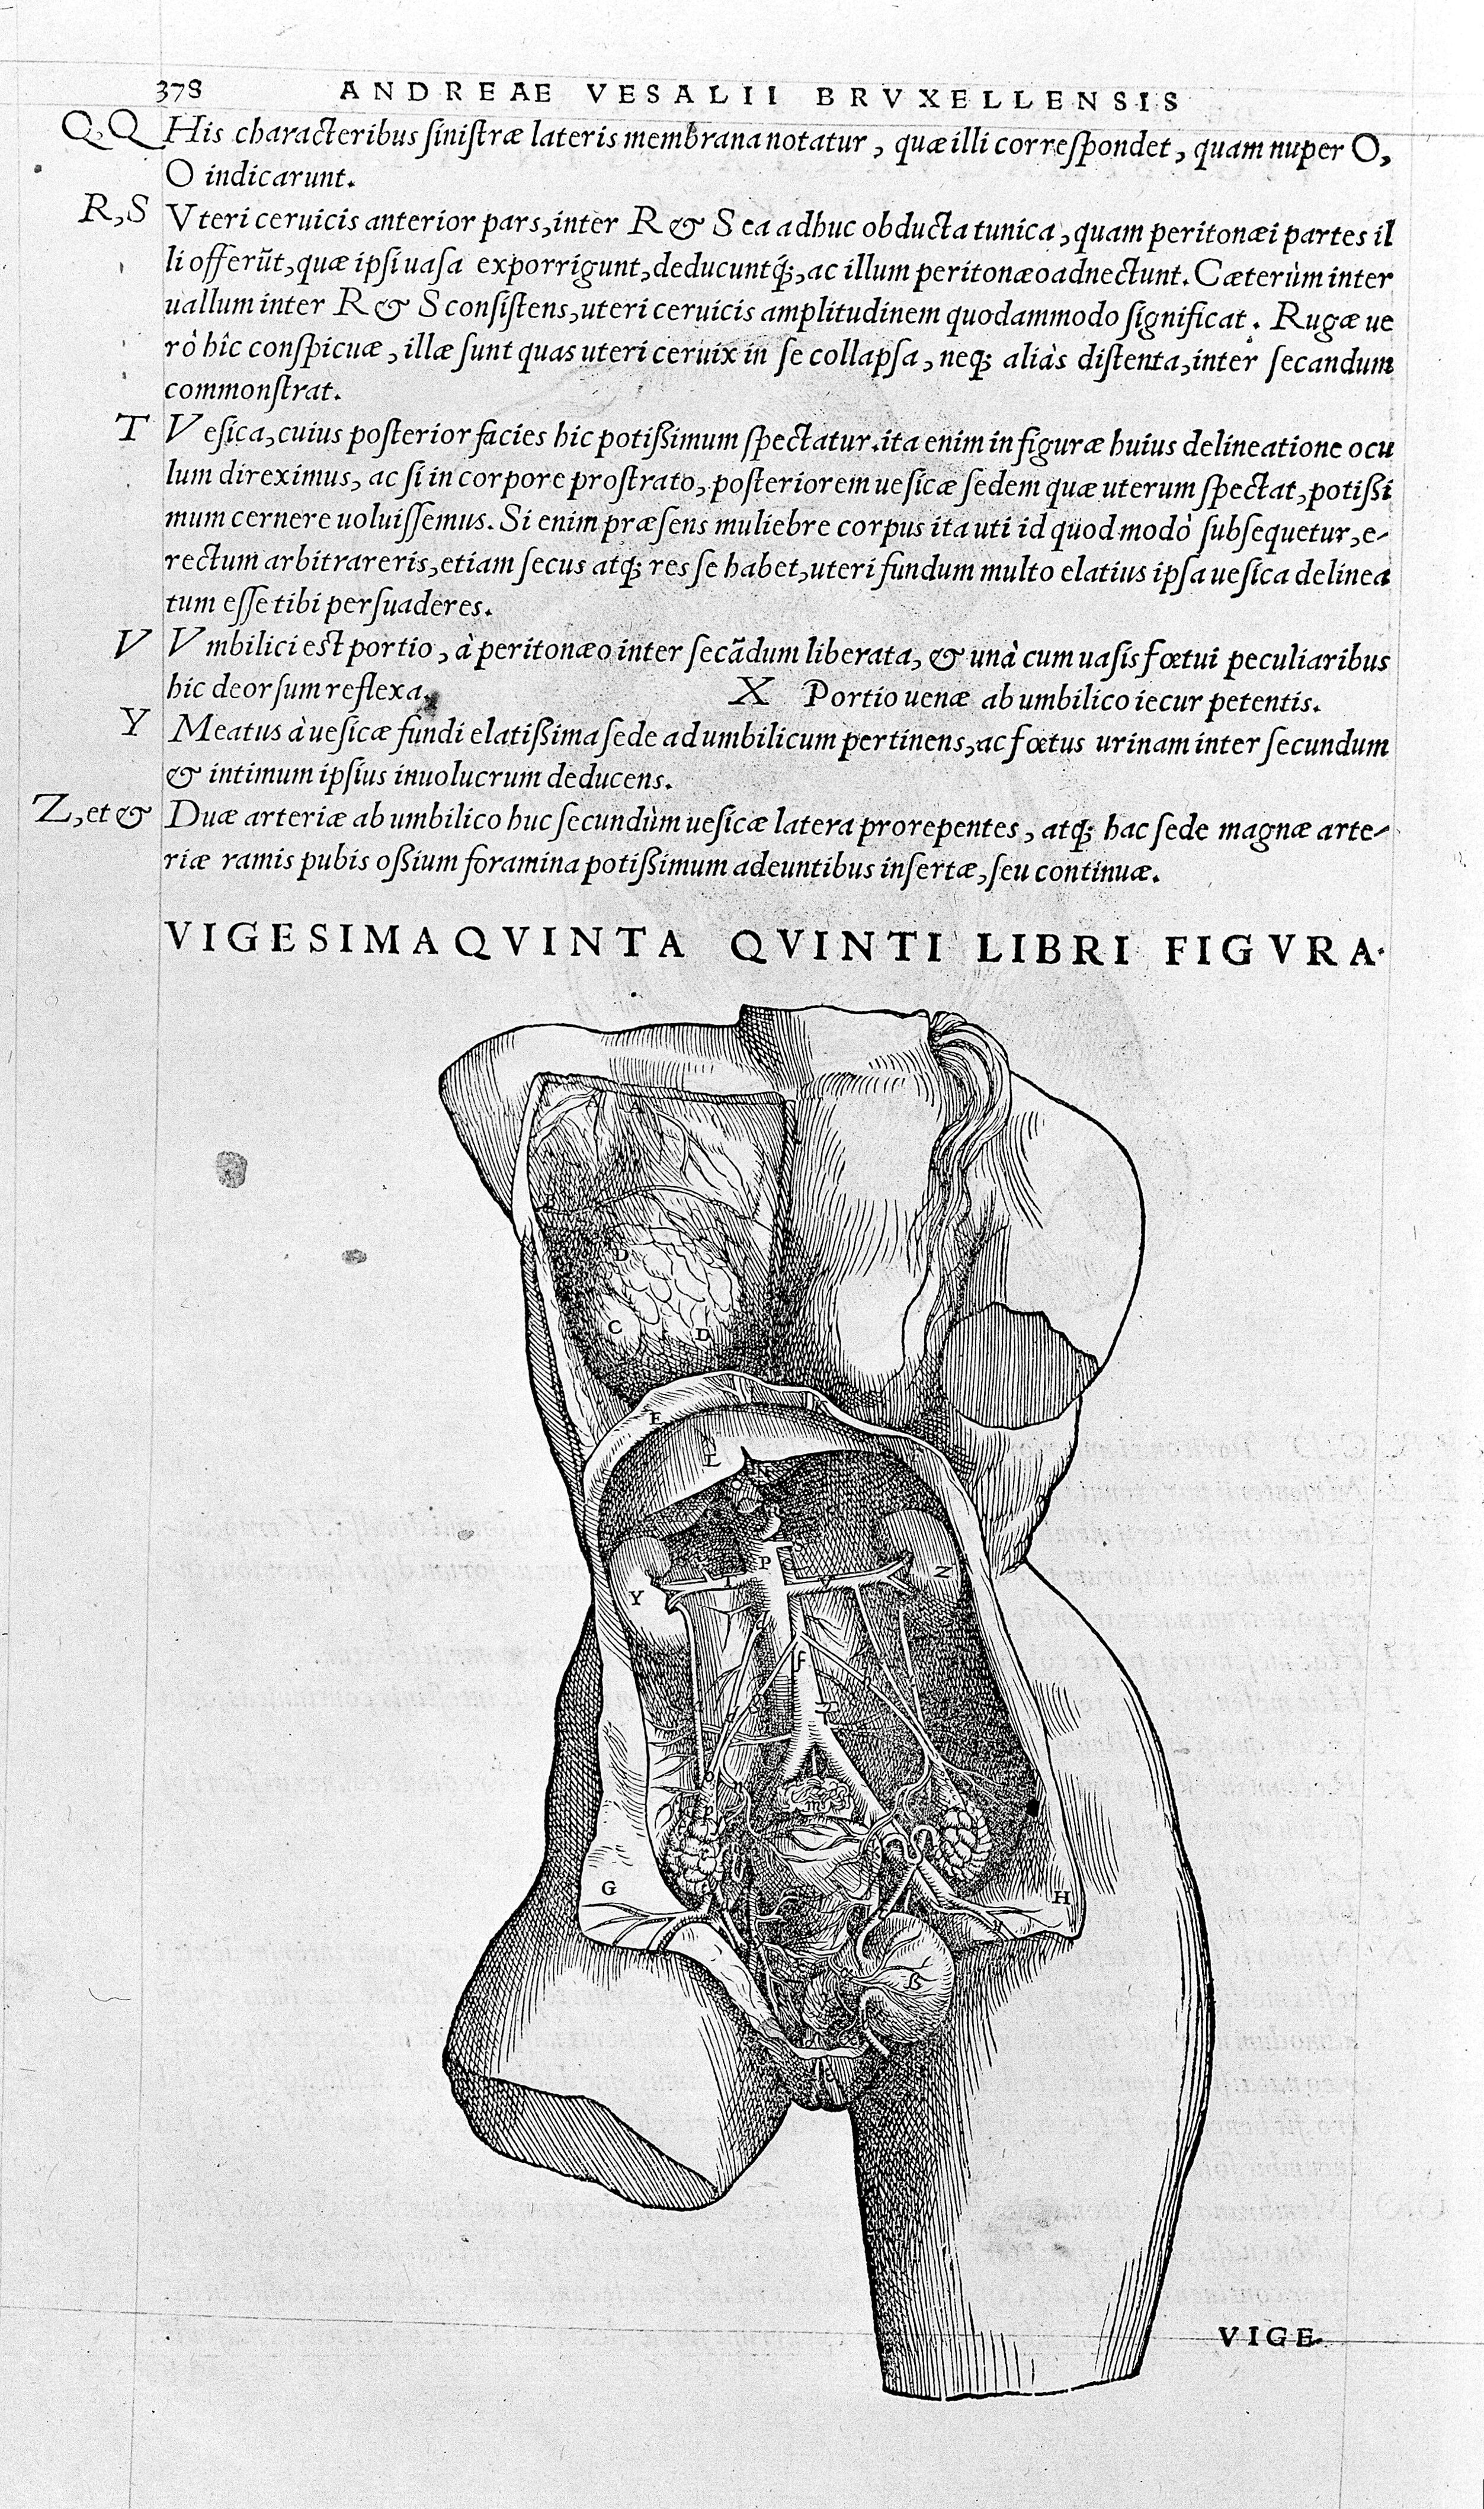 378 ANDREAE VESALII BRVXELLENSIS
Q,Q His characteribus ſiniſtræ lateris membrana notatur, quæ illi correſpondet, quam nuper O,
O indicarunt.
R,S Vteri ceruicis anterior pars, inter R & S ea adhuc obducta tunica, quam peritonæi partes il
li offerūt, quæ ipſi uaſa exporrigunt, deducuntq́;, ac illum peritonæo adnectunt. Cæterùm inter
uallum inter R & S conſiſtens, uteri ceruicis amplitudinem quodammodo ſignificat. Rugæ ue
rò hîc conſpicuæ, illæ ſunt quas uteri ceruix in ſe collapſa, neq; aliàs diſtenta, inter ſecandum
commonſtrat.
T Veſica, cuius poſterior facies hic potißimum ſpectatur. ita enim in figuræ huius delineatione ocu
lum direximus, ac ſi in corpore proſtrato, poſteriorem ueſicæ ſedem quæ uterum ſpectat, potißi
mum cernere uoluiſſemus. Si enim præſens muliebre corpus ita uti id quod modò ſubſequetur, e-
rectum arbitrareris, etiam ſecus atq; res ſe habet, uteri fundum multo elatius ipſa ueſica delinea
tum eſſe tibi perſuaderes.
V Vmbilici eſt portio, à peritonæo inter ſecādum liberata, & unà cum uaſis fœtui peculiaribus
hic deorſum reflexa. X Portio uenæ ab umbilico iecur petentis.
Y Meatus à ueſicæ fundi elatißima ſede ad umbilicum pertinens, ac fœtus urinam inter ſecundum
& intimum ipſius inuolucrum deducens.
Z, et & Duæ arteriæ ab umbilico huc ſecundùm ueſicæ latera prorepentes, atq; hac ſede magnæ arte-
riæ ramis pubis oßium foramina potißimum adeuntibus inſertæ, ſeu continuæ.
VIGESIMAQVINTA QVINTI LIBRI FIGVRA.
A A
D
C D
E
L
P
Y T V Z
d
f
o n
p m
G H
ß
VIGE-